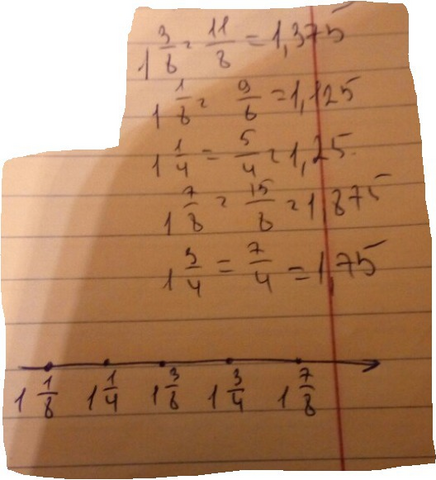 1 3/8 = 11/8 = 1,375
1 1/8 = 9/8 = 1,125
1 1/4 = 5/4 = 1,25
1 7/8 = 15/8 = 1,875
1 3/4 = 7/4 = 1,75
1 1/8 1 1/4 1 3/8 1 3/4 1 7/8